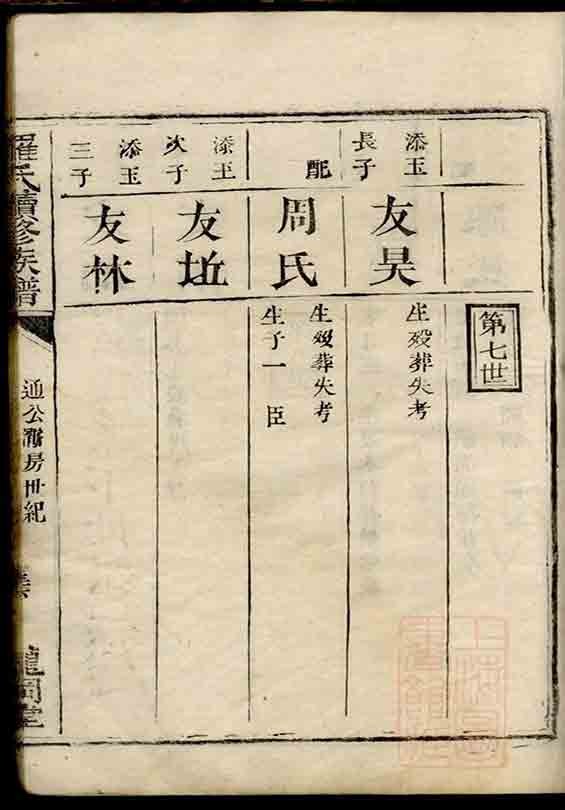 第七世
添玉
長子
友昊
生殁葬失考
配
周氏
生殁葬失考
生子一 臣
添玉
次子
友坵
添玉
三子
友林
羅氏續修族譜
通公 房世紀
龍 堂
上海圖
書館藏